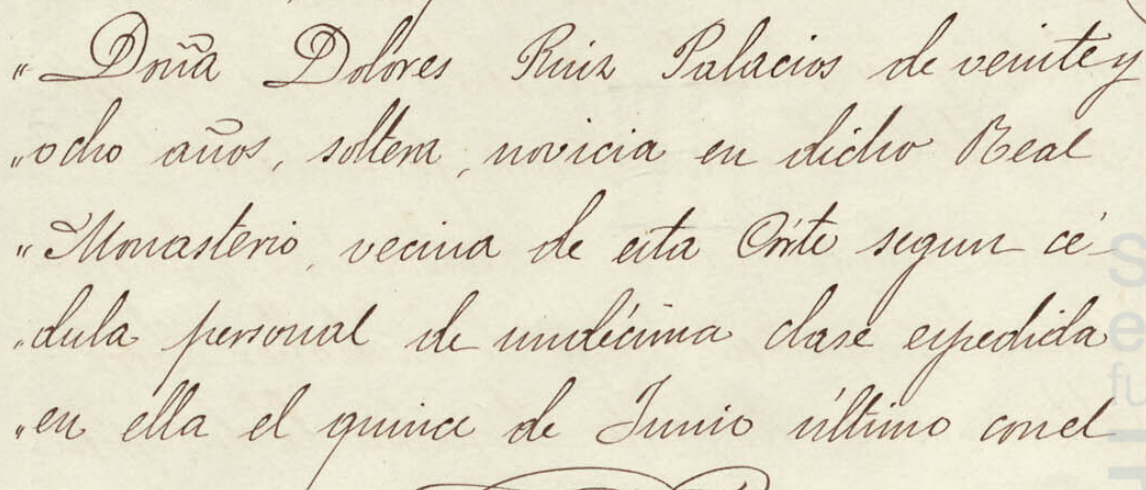 " Doña Dolores Ruiz Palacios de veinte y
" ocho años, soltera, novicia en dicho Real
" Monasterio, vecina de esta Córte segun cé-
" dula personal de undécima clase espedida
" en ella el quince de Junio último con el